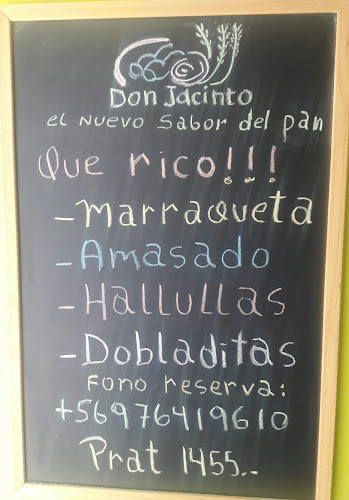 Don Jacinto
el Nuevo Sabor del pan
Que rico!!!
- Marraqueta
- Amasado
- Hallullas
- Dobladitas
Fono reserva:
+56976419610
Prat 1455.-